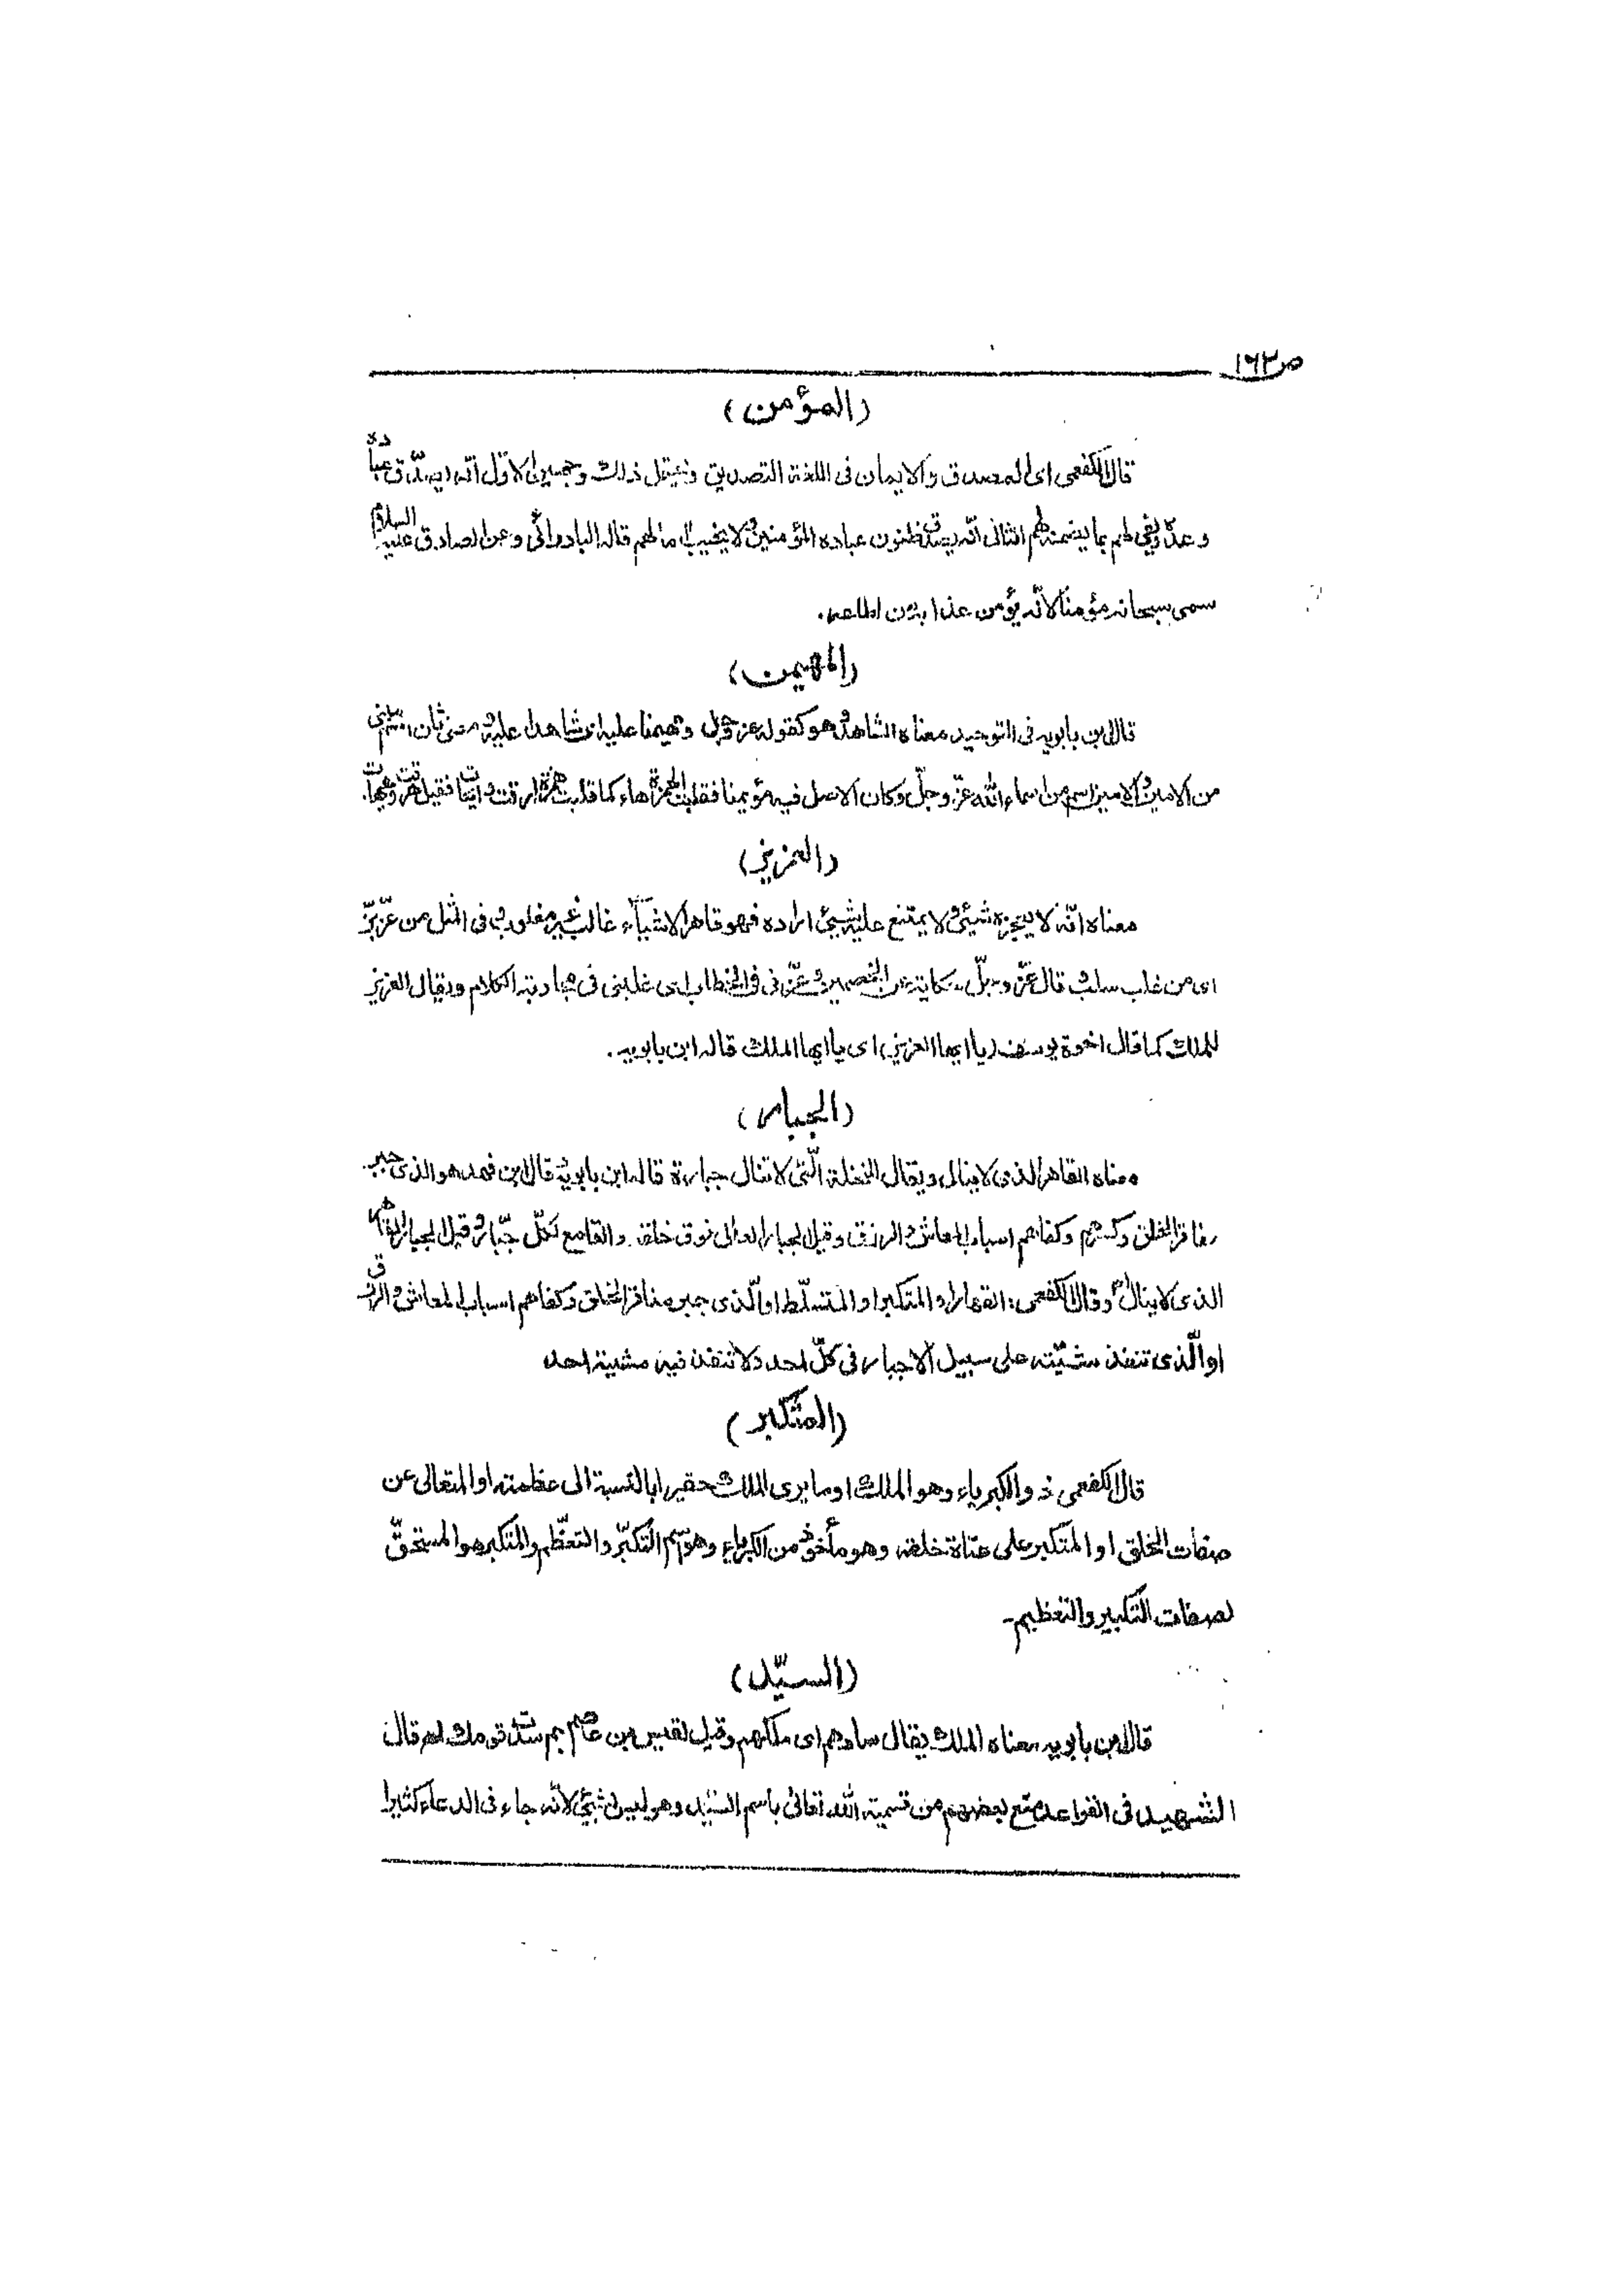 ص ١٦٣
(المؤمن)
قال الكفعمى اى المصدق والايمان فى اللغة التصديق ويحتمل ذلك وجهين الاوّل انّه يصدّق عباده
وعده ويفى لهم بما يضمنه لهم الثانى انّه يصدق ظنون عباده المؤمنين ولا يخيب آمالهم قاله البادرائى وعن الصادق عليه السلام
سمى سبحانه مؤمنا لانّه يؤمن عذابه من اطاعه.
(المهيمن)
قال ابن بابويه فى التوحيد معناه الشاهد وهو كقوله عز وجل ومهيمنا عليه اى شاهدا عليه ومعنى ثان انه مبنى
من الامين والامين اسم من اسماء الله عزّ وجلّ وكان الاصل فيه مؤيمنا فقلبت الهمزة هاء كما قلبت همزة ارقت وايهات فقيل هرقت وهيهات.
(العزيز)
معناه انّه لا يعجزه شيئى ولا يمتنع عليه شيئى اراده فهو قاهر الاشيآء غالب غير مغلوب وفى المثل من عزّ بزّ
اى من غلب سلب قال عزّ وجلّ حكاية عن الخصمين وعزّنى فى الخطاب اى غلبنى فى مجاوبة الكلام ويقال العزيز
للملك كما قال اخوة يوسف (يا ايها العزيز) اى يا ايها الملك قاله ابن بابويه.
(الجبار)
معناه القاهر الذى لا ينال ويقال للنخلة الّتى لا تنال جبارة قاله ابن بابويه قال ابن فهد هو الذى جبر
مفاقر الخلق وكسرهم وكفاهم اسباب المعاش والرزق وقيل الجبار العالى فوق خلقه والقامع لكلّ جبّار وقيل الجبار القاهر
الذى لا ينال وقال الكفعمى: القهار او المتكبر او المتسلّط او الّذى جبر مفاقر الخلق وكفاهم اسباب المعاش والرزق
او الّذى تنفذ مشيّته على سبيل الاجبار فى كلّ احد ولا تنفذ فيه مشية احد
(المتكبر)
قال الكفعمى ذو الكبرياء وهو الملك او ما يرى الملك حقيرا بالنسبة الى عظمته او المتعالى عن
صفات الخلق او المتكبر على عتاة خلقه وهو مأخوذ من الكبرياء وهو اسم التكبّر والتعظّم والمتكبر هو المستحقّ
لصفات التكبير والتعظيم-
(السيّد)
قال ابن بابويه معناه الملك يقال سادهم اى ملكهم وقيل لقيس بن عاصم بم سدت قومك قال
الشهيد فى القواعد منع بعضهم من تسمية الله تعالى باسم السيّد وهو ليس بشيئى لانّه جاء فى الدعاء كثيرا